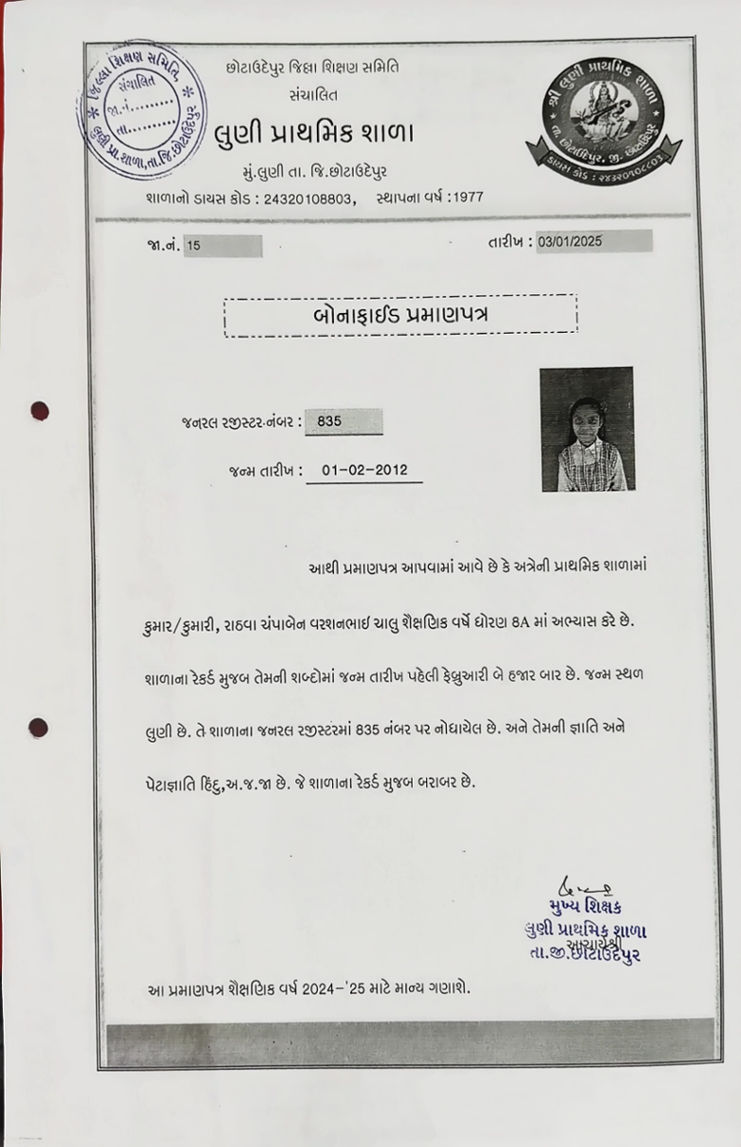 જિલ્લા શિક્ષણ સમિતિ,
સંચાલિત
જા.નં..........
તા............
લુણી પ્રા.શાળા,તા.જિ.છોટાઉદેપુર
છોટાઉદેપુર જિલ્લા શિક્ષણ સમિતિ
સંચાલિત
લુણી પ્રાથમિક શાળા
મું.લુણી તા. જિ.છોટાઉદેપુર
શાળાનો ડાયસ કોડ : 24320108803, સ્થાપના વર્ષ :1977
શ્રી લુણી પ્રાથમિક શાળા
તા. છોટાઉદેપુર, જી. છોટાઉદેપુર
ડાયસ કોડ : ૨૪૩૨૦૧૦૮૮૦૩
જા.નં. 15
તારીખ : 03/01/2025
બોનાફાઈડ પ્રમાણપત્ર
જનરલ રજીસ્ટર નંબર : 835
જન્મ તારીખ : 01-02-2012
આથી પ્રમાણપત્ર આપવામાં આવે છે કે અત્રેની પ્રાથમિક શાળામાં
કુમાર/કુમારી, રાઠવા ચંપાબેન વરશનભાઈ ચાલુ શૈક્ષણિક વર્ષે ધોરણ 8A માં અભ્યાસ કરે છે.
શાળાના રેકર્ડ મુજબ તેમની શબ્દોમાં જન્મ તારીખ પહેલી ફેબ્રુઆરી બે હજાર બાર છે. જન્મ સ્થળ
લુણી છે. તે શાળાના જનરલ રજીસ્ટરમાં 835 નંબર પર નોધાયેલ છે. અને તેમની જ્ઞાતિ અને
પેટાજ્ઞાતિ હિંદુ,અ.જ.જા છે. જે શાળાના રેકર્ડ મુજબ બરાબર છે.
મુખ્ય શિક્ષક
લુણી પ્રાથમિક શાળા
આચાર્યશ્રી
તા.જી.છોટાઉદેપુર
આ પ્રમાણપત્ર શૈક્ષણિક વર્ષ 2024-'25 માટે માન્ય ગણાશે.